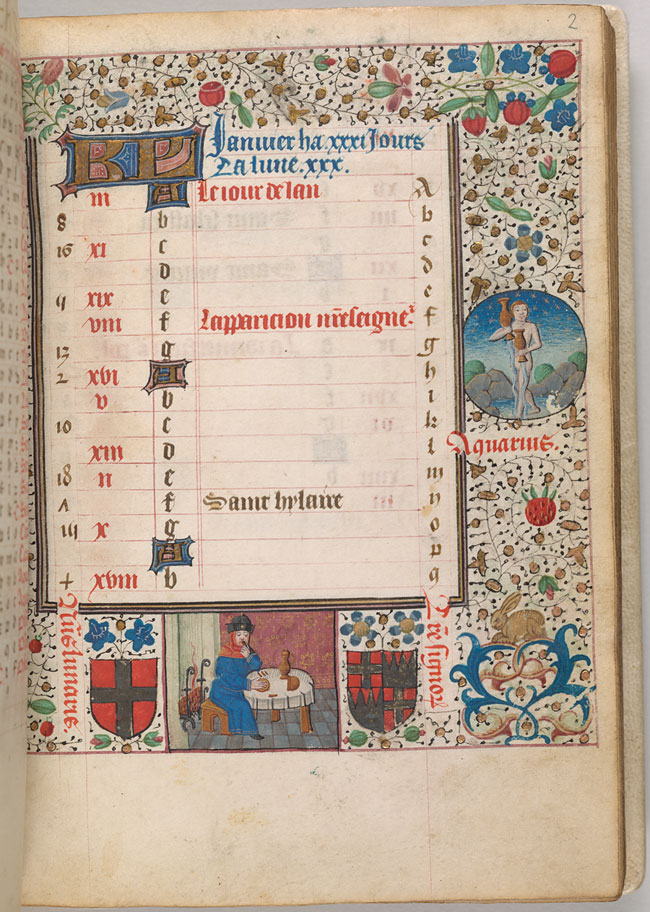 2
KL Januier ha .xxxi Jours
La lune .xxx.
iii A Le iour de lan A
8 b b
16 xi c c
d d
5 xix e e
viii f Lapparicion nreseigne f
13 g g
2 xvi A h
v b i
10 c k
xiii d l
18 ii e m
7 f Saint hylaire n
15 x g o
A p
4 xviii b q
Aquarius.